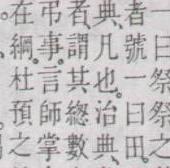 一曰祭祭之
者號一曰田
典凡也治典
者謂其總數
弔事言師掌
在綱杜預之